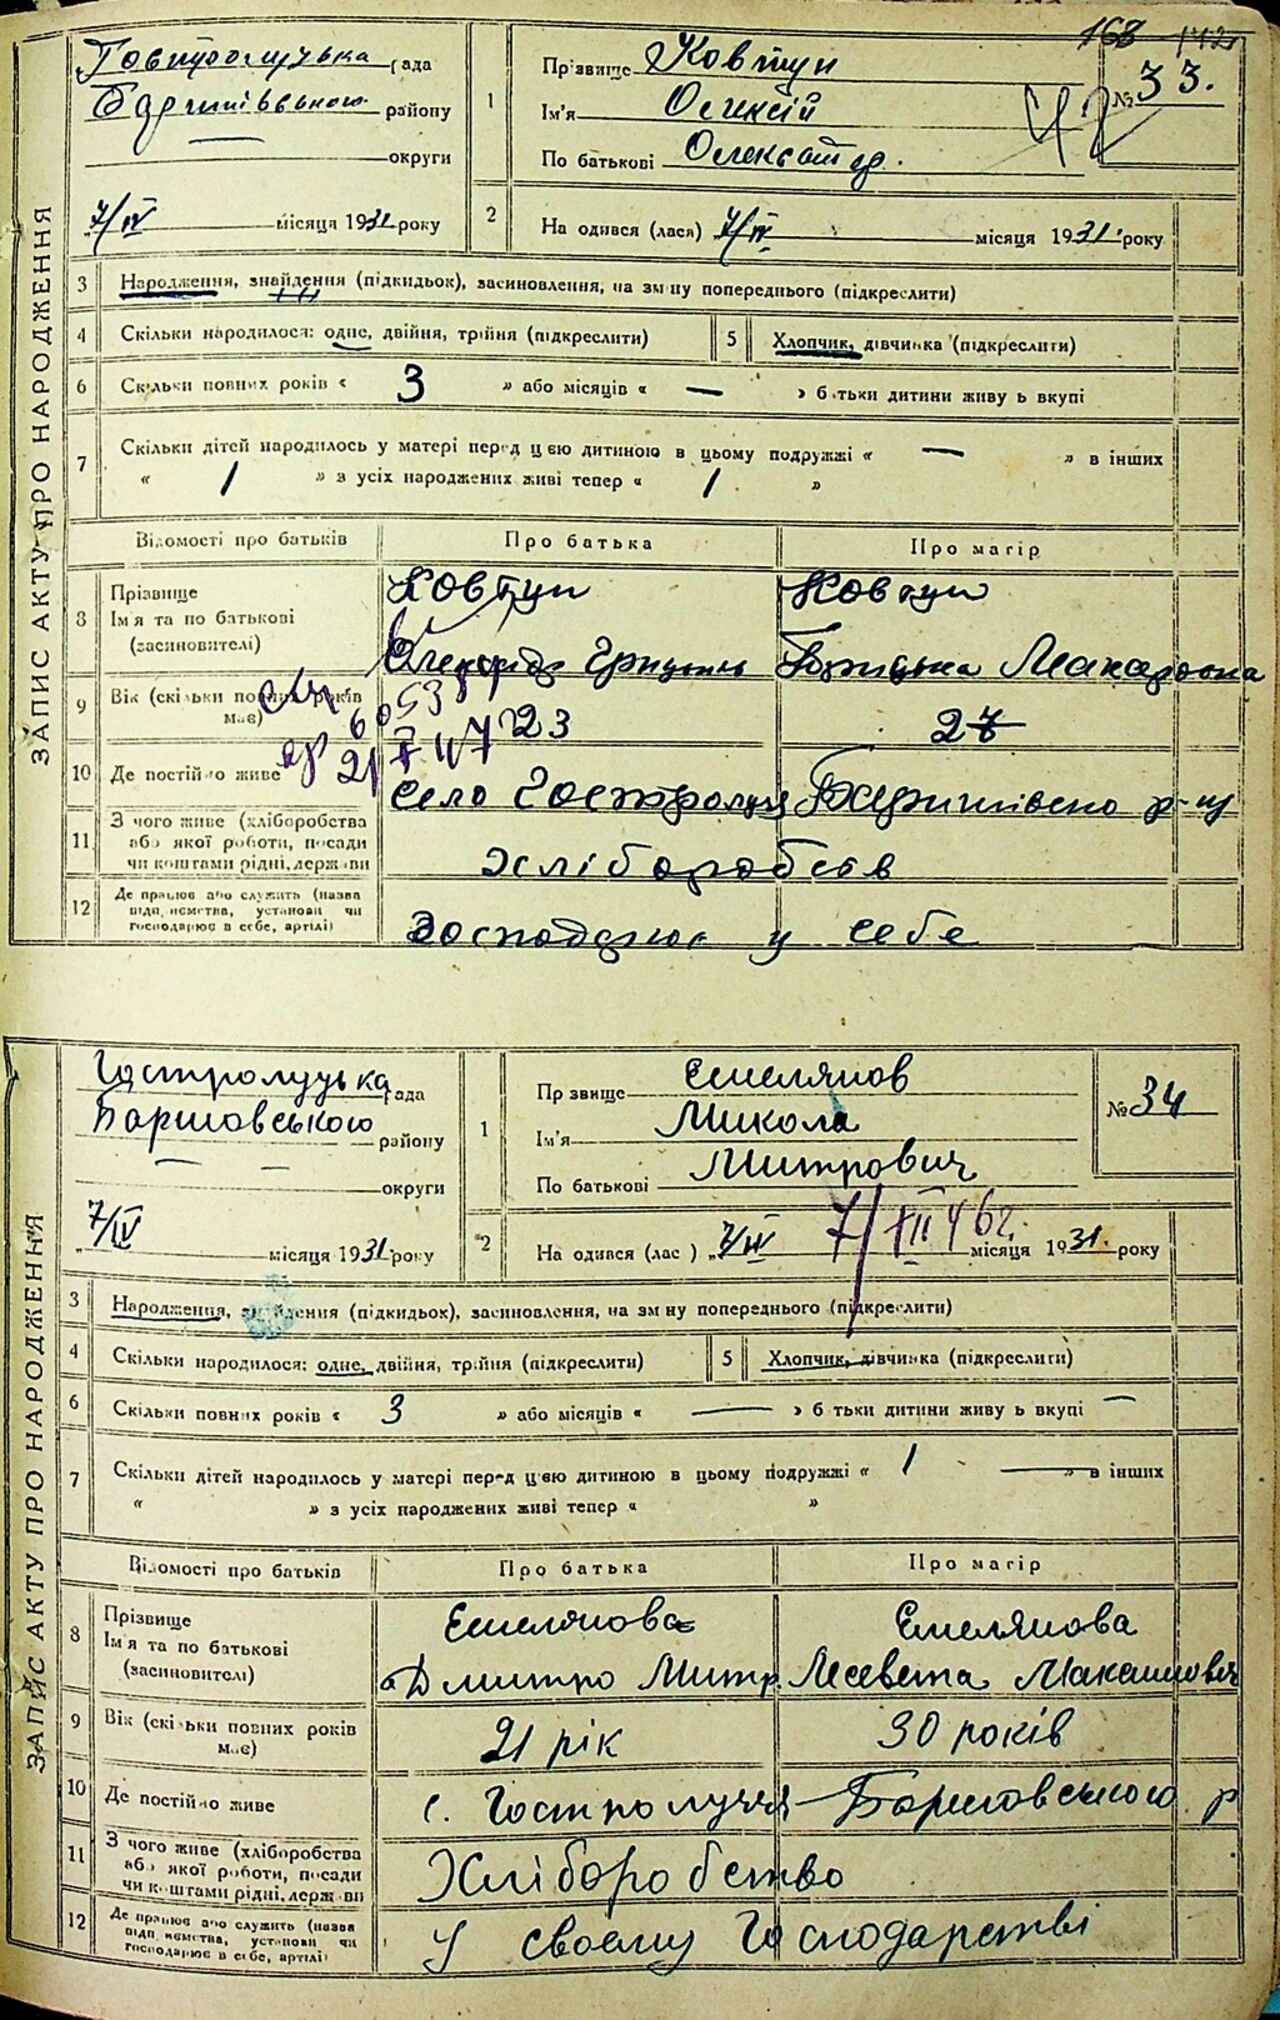 ЗАПИС АКТУ ПРО НАРОДЖЕННЯ
168
рада
району
округи
7/IV місяця 1931 року
1
Прізвище Ковтун
Ім'я Олексій
По батькові Олександр.
№ 33.
2
Народився (лася) 7/IV місяця 1931 року
3 Народження, знайдення (підкидьок), засиновлення, на зміну попереднього (підкреслити)
4 Скільки народилося: одне, двійня, трійня (підкреслити)
5 Хлопчик, дівчинка (підкреслити)
6 Скільки повних років « 3 » або місяців « — » батьки дитини живуть вкупі
7 Скільки дітей народилось у матері перед цією дитиною в цьому подружжі « — » в інших
« 1 » з усіх народжених живі тепер « 1 »
Відомості про батьків Про батька Про матір
8 Прізвище Ковтун Ковтун
Ім'я та по батькові
(засиновителі) Макаровна
9 Вік (скільки повних років має) 23 27
10 Де постійно живе село
11 З чого живе (хліборобства
або якої роботи, посади
чи коштами рідні, держави
Хліборобств
12 Де працює або служить (назва
підприємства, установи чи
господарює в себе, артілі)
Господарює у себе
ЗАПИС АКТУ ПРО НАРОДЖЕННЯ
Гостролуцька рада
Баришовського району
округи
7/IV місяця 1931 року
1
Прізвище Емелянов
Ім'я Микола
По батькові Митрович
№ 34
2
Народився (лася) 7/IV місяця 1931. року
7/XII 46 г.
3 Народження, знайдення (підкидьок), засиновлення, на зміну попереднього (підкреслити)
4 Скільки народилося: одне, двійня, трійня (підкреслити)
5 Хлопчик, дівчинка (підкреслити)
6 Скільки повних років « 3 » або місяців « — » батьки дитини живуть вкупі —
7 Скільки дітей народилось у матері перед цією дитиною в цьому подружжі « 1 — » в інших
« » з усіх народжених живі тепер « »
Відомості про батьків Про батька Про матір
8 Прізвище Емелянов Емелянова
Ім'я та по батькові
(засиновителі) Дмитро Митр. Лесевета
9 Вік (скільки повних років має) 21 рік 30 років
10 Де постійно живе с. Гостролуччя Баришовського р
11 З чого живе (хліборобства
або якої роботи, посади
чи коштами рідні, держави
Хліборобство
12 Де працює або служить (назва
підприємства, установи чи
господарює в себе, артілі)
У своему Господарстві